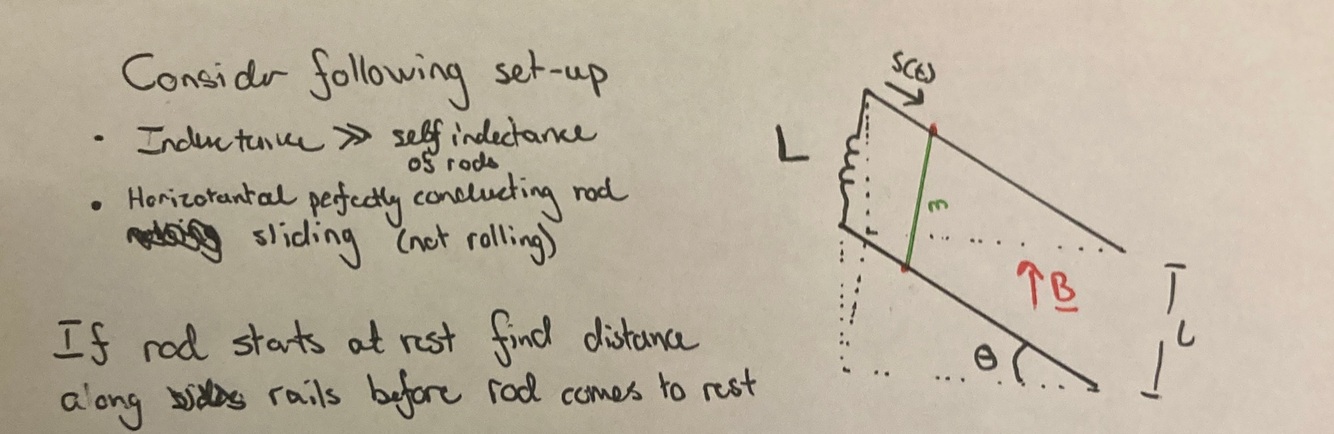 Consider following set-up
• Inductance >> self inductance
of rods
• Horizorantal perfectly conducting rod
sliding (not rolling)
If rod starts at rest find distance
along rails before rod comes to rest
S(t)
L
m
B
θ
l